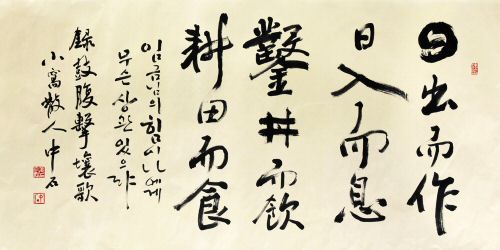 日出而作
日入而息
鑿井而飮
耕田而食
임금님의 힘이 나에게
무슨 상관 있으랴
錄鼓腹擊壤歌
小窩散人中石